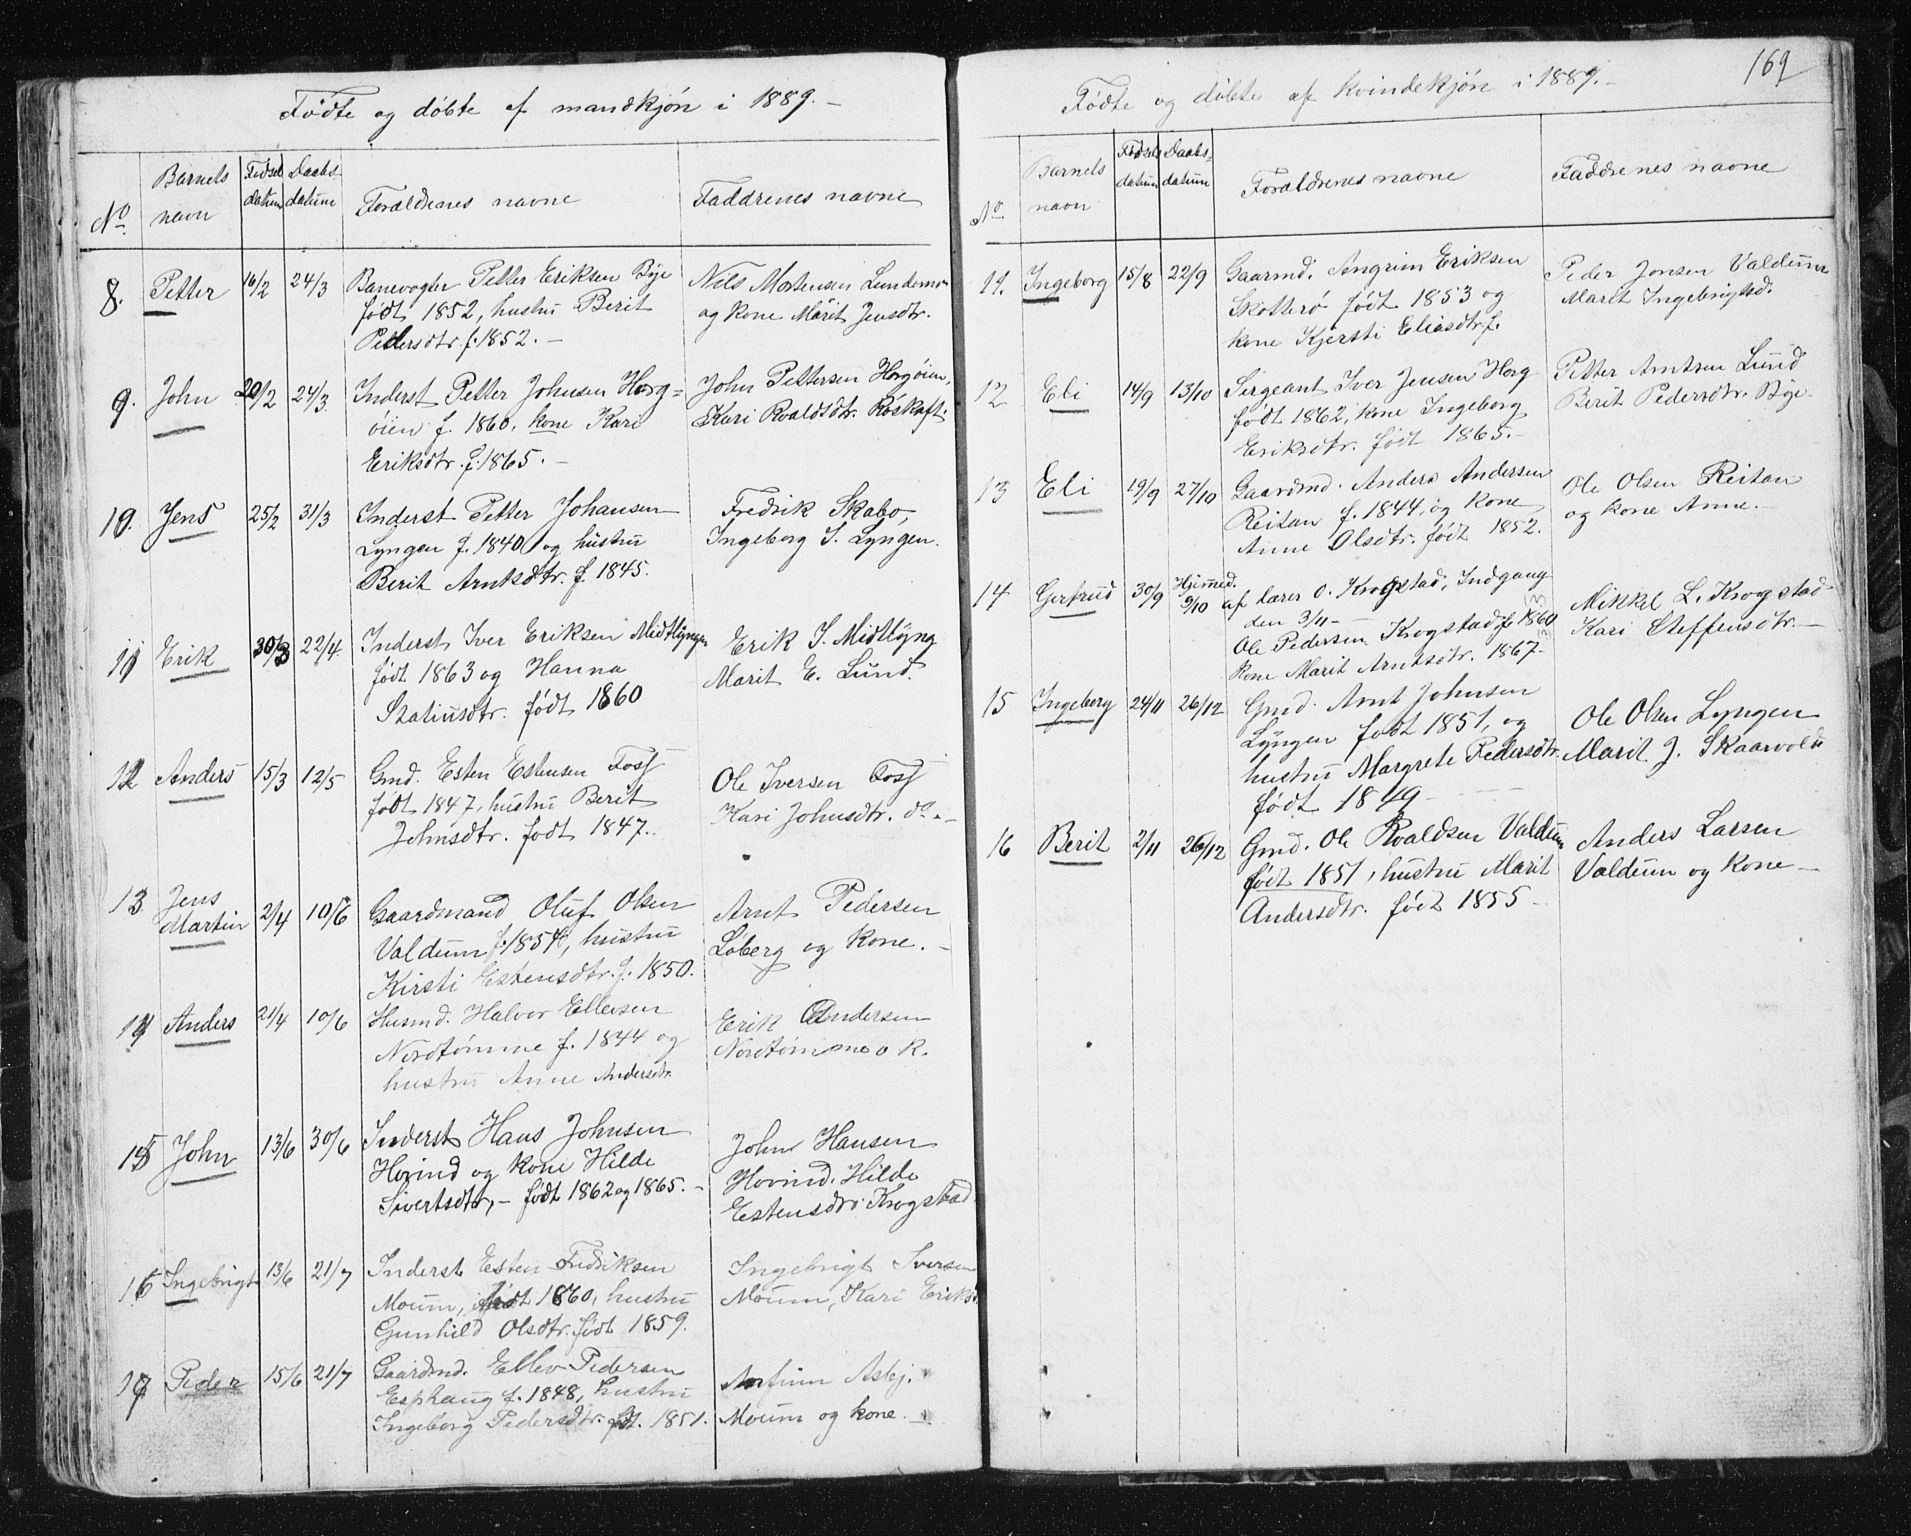 Fødte og døbte af mandkjøn i 1889. –
No. Barnets navn Fødsels datum Daabs datum Forældrenes navne Faddrenes navne
8. Petter 16/2 24/3 Banevogter Petter Eriksen Bye Nils Mortensen Lundemo
født 1852, hustru Berit og kone Marit Jensdtr.
Pedersdtr. f. 1852. –
9. John 20/2 24/3 Inderst Petter Johnsen Horg= John Pettersen Horgøien,
øien f. 1860, kone Kari Kari Roaldsdtr. Røskaft.
Eriksdtr. f. 1865. –
10. Jens 25/2 31/3 Inderst Petter Johansen Fredrik Skabo,
Lyngen f. 1840 og hustru Ingeborg I. Lyngen.
Berit Arntsdtr. f. 1845.
11 Erik 30/3 22/4 Inderst Iver Eriksen Midtlyngen Erik I. Midtlyng
født 1863 og Hanna Marit E. Lund.
Statiusdtr. født 1860
12 Anders 15/3 12/5 Gmd. Esten Estensen Foss Ole Iversen Foss
født 1847, hustru Berit Kari Johnsdtr. do. –
Johnsdtr. født 1847.
13 Jens Martin 2/4 10/6 Gaardmand Oluf Olsen Arnt Pedersen
Valdum f. 1854, hustru Løberg og kone. –
Kirsti Estensdtr. f. 1850.
14 Anders 21/4 10/6 Husmd. Halvor Ellevsen Erik Andersen
Nordtømme f. 1844 og Nordtømme o K.
hustru Anne Andersdtr.
15 John 13/6 30/6 Inderst Hans Johnsen John Hansen
Hovind og kone Hilde Hovind. Hilde
Sivertsdtr, – født 1862 og 1865. – Estensdtr. Krogstad
16 Ingebrigt 13/6 21/7 Inderst Esten Fredriksen Ingebrigt Iversen
Moum, født 1860, hustru Moum, Kari Eriksd.
Gunhild Olsdtr. født 1859.
17 Peder 15/6 21/7 Gaardmd. Ellev Pedersen Arfinn Asbj.
Esphaug f. 1848, hustru Moum og kone. –
Ingeborg Pedersdtr. fdt. 1851.
169
Fødte og døbte af kvindekjøn i 1889. –
No. Barnets navn Fødsels datum Daabs- datum Forældrenes navne Faddrenes navne
11. Ingeborg 15/8 22/9 Gaarmd. Arngrim Eriksen Peder Jonsen Valdum
Skotterø født 1853 og Marit Ingebrigtsd.
kone Kjersti Eliasdtr. f.
12 Eli 14/9 13/10 Sergeant Iver Jensen Horg Petter Arntsen Lund
født 1862, kone Ingeborg Berit Pedersdtr. Bye.
Eriksdtr. født 1865. –
13 Eli 19/9 27/10 Gaardmd. Anders Andersen Ole Olsen Reitan
Reitan f. 1844, og kone og kone Anne. –
Anne Olsdtr. født 1852.
14 Gertrud 30/9 Hjemmed. 9/10 af lærer O. Krogstad, Indgang Mikkel L. Krogstad
den 3/11 –
Ole Pedersen Krogstad f. 1860 Kari Steffensdtr. –
kone Marit Arntsdtr. 1867. –
15 Ingeborg 24/11 26/12 Gmd. Arnt Johnsen Ole Olsen Lyngen
Lyngen født 1851, og Marit J. Skaarvold
hustru Margrete Pedersdtr.
født 1849 –
16 Berit 2/11 26/12 Gmd. Ole Roaldsen Valdum Anders Larsen
født 1851, hustru Marit Valdum og kone –
Andersdtr. født 1855 –